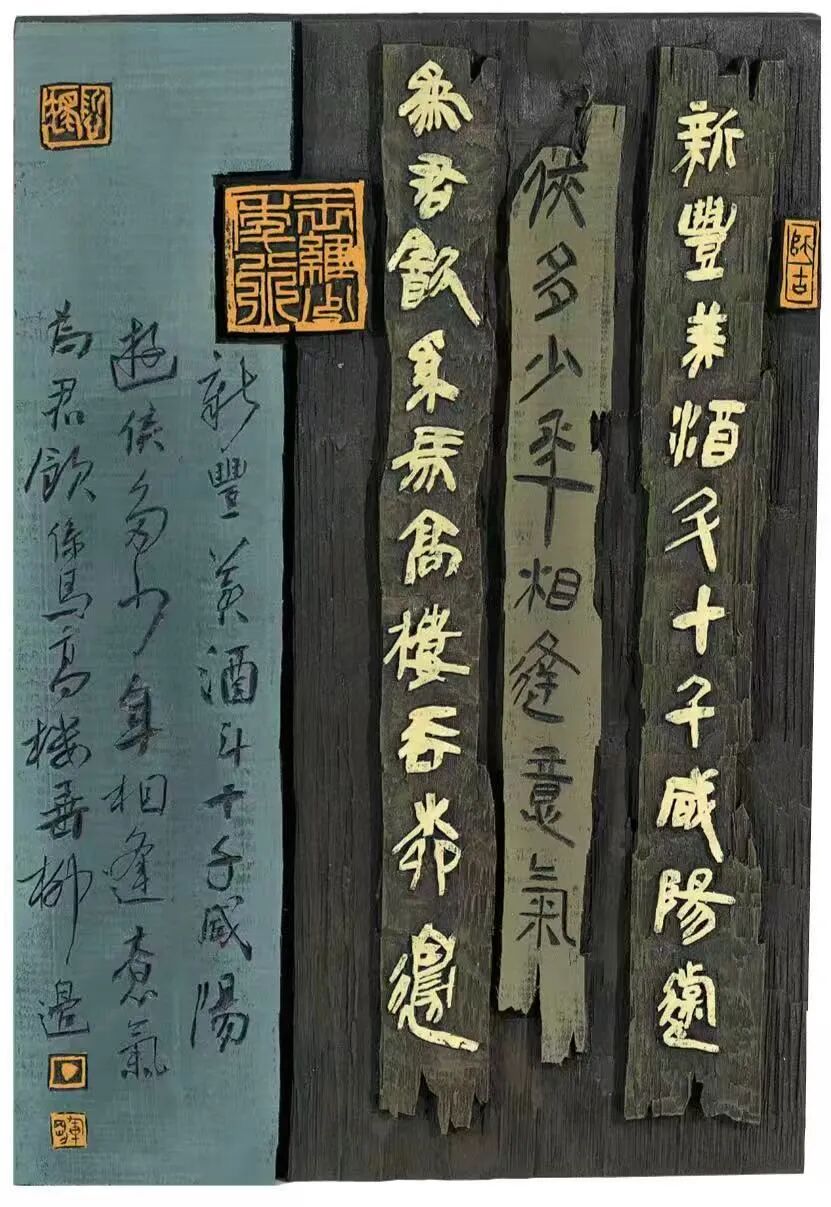 師古
新豐美酒斗十千咸陽遊
俠多少年相逢意氣
為君飲系馬高樓垂柳邊
王維少年行
新豐美酒斗十千咸陽
遊俠多少年相逢意氣
為君飲係馬高樓垂柳邊